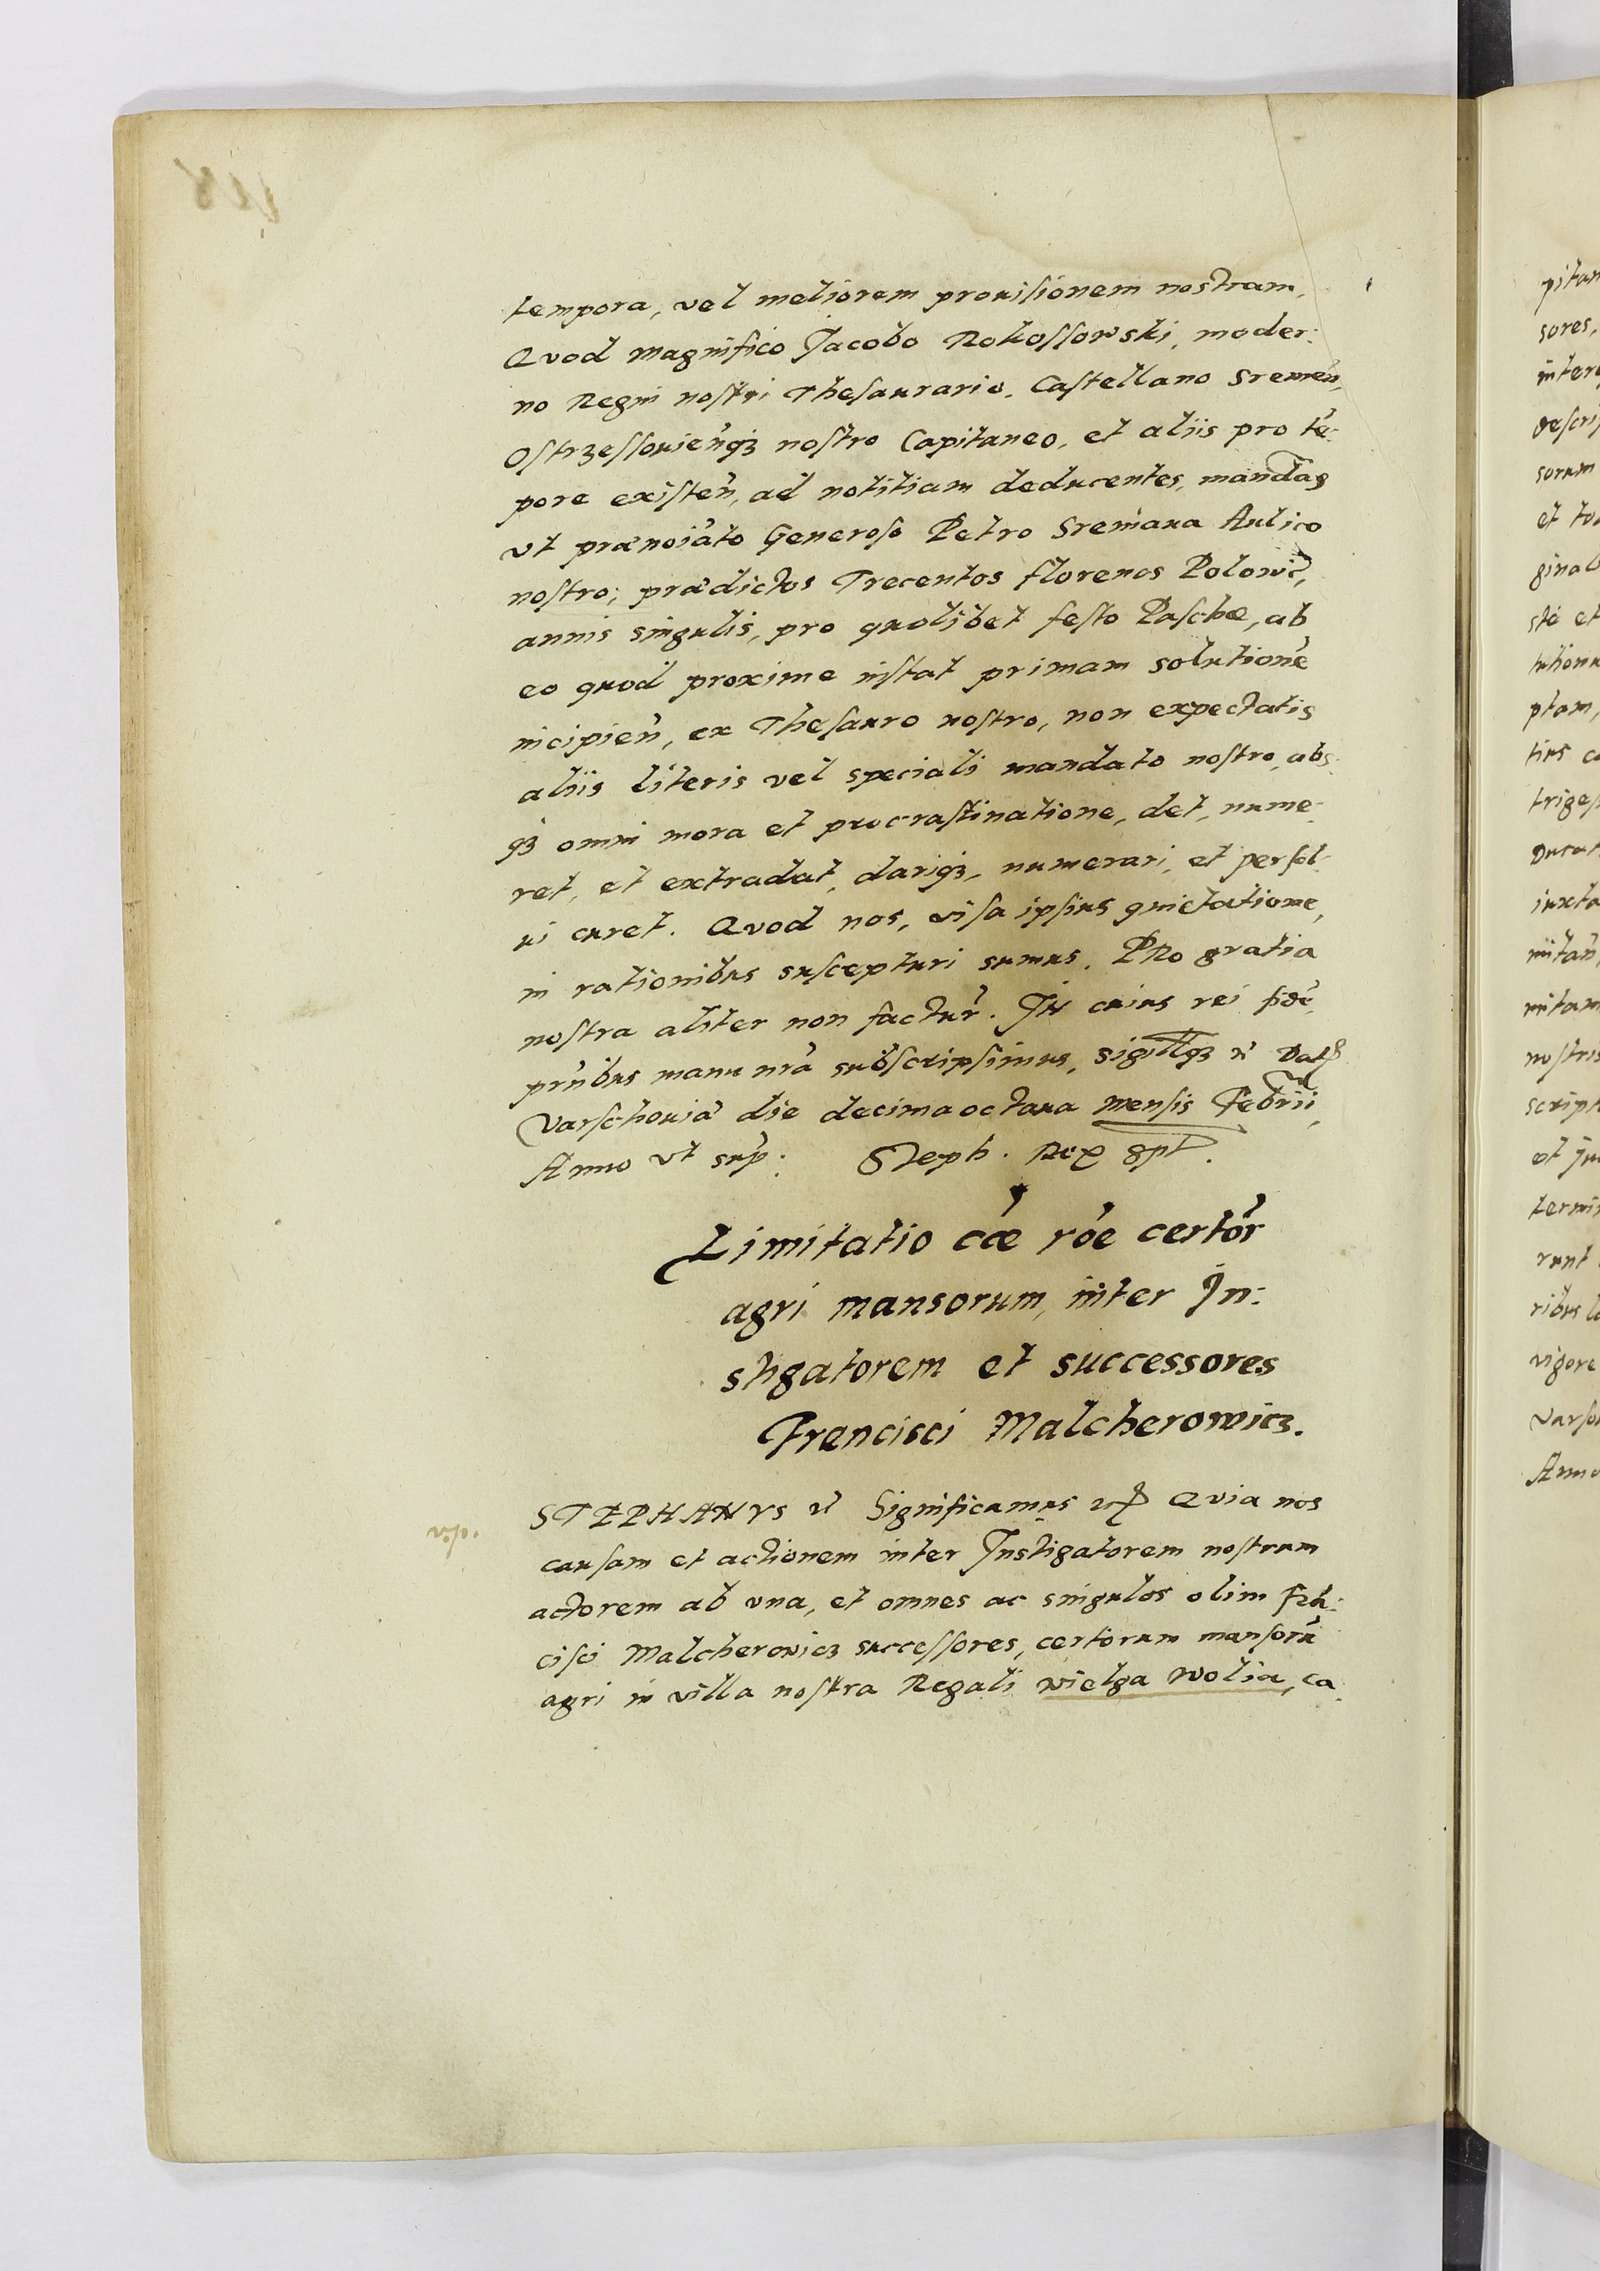 tempora, vel meliorem prouisionem nostram,
Qvod magnifico Jacobo Rokossowski, moder:
no Regni nostri Thesaurario, Castellano Sremeñ,
Ostrzessouieñqз nostro Capitaneo, et aliis pro tē:
pore existeñ, ad notitiam deducentes, mandaɡ
vt prænoiãto Generoso Petro Sremaua Aulico
nostro; prædictos Trecentos florenos Polonic̃,
annis singulis, pro quolibet festo Paschæ, ab
eo quod proxime instat primam solutionē
incipieñ, ex Thesauro nostro, non expectatis
aliis literis vel speciali mandato nostro, abs:
qз omni mora et procrastinatione, det, nume:
ret, et extradat, dariqз, numerari, et persol:
ui curet. Qvod nos, visa ipsius quietatione,
in rationibus suscepturi sumus. PRo gratia
nostra aliter non factur̃. IN cuius rei fidē,
prñtibus manu nrã subscripsimus, sigillqз
Varschouiæ die decima octaua mensis Febrii,
Anno vt sup̃: Steph. Rex sp̃t.
Limitatio cãe rõe certor̃
agri mansorum, inter In:
stigatorem et successores
Francisci Malcherowicz.
STEPHANVS Significamus Qvia nos
causam et actionem inter Instigatorem nostrum
actorem ab vna, et omnes ac singulos olim Frã:
cisci Malcherouicz successores, certorum mansorū
agri in villa nostra Regali wielga wolia, ca: